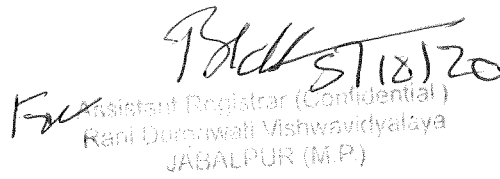 5/10/20
For Assistant Registrar (Confidential)
Rani Durgawati Vishwavidyalaya
JABALPUR (M.P.)